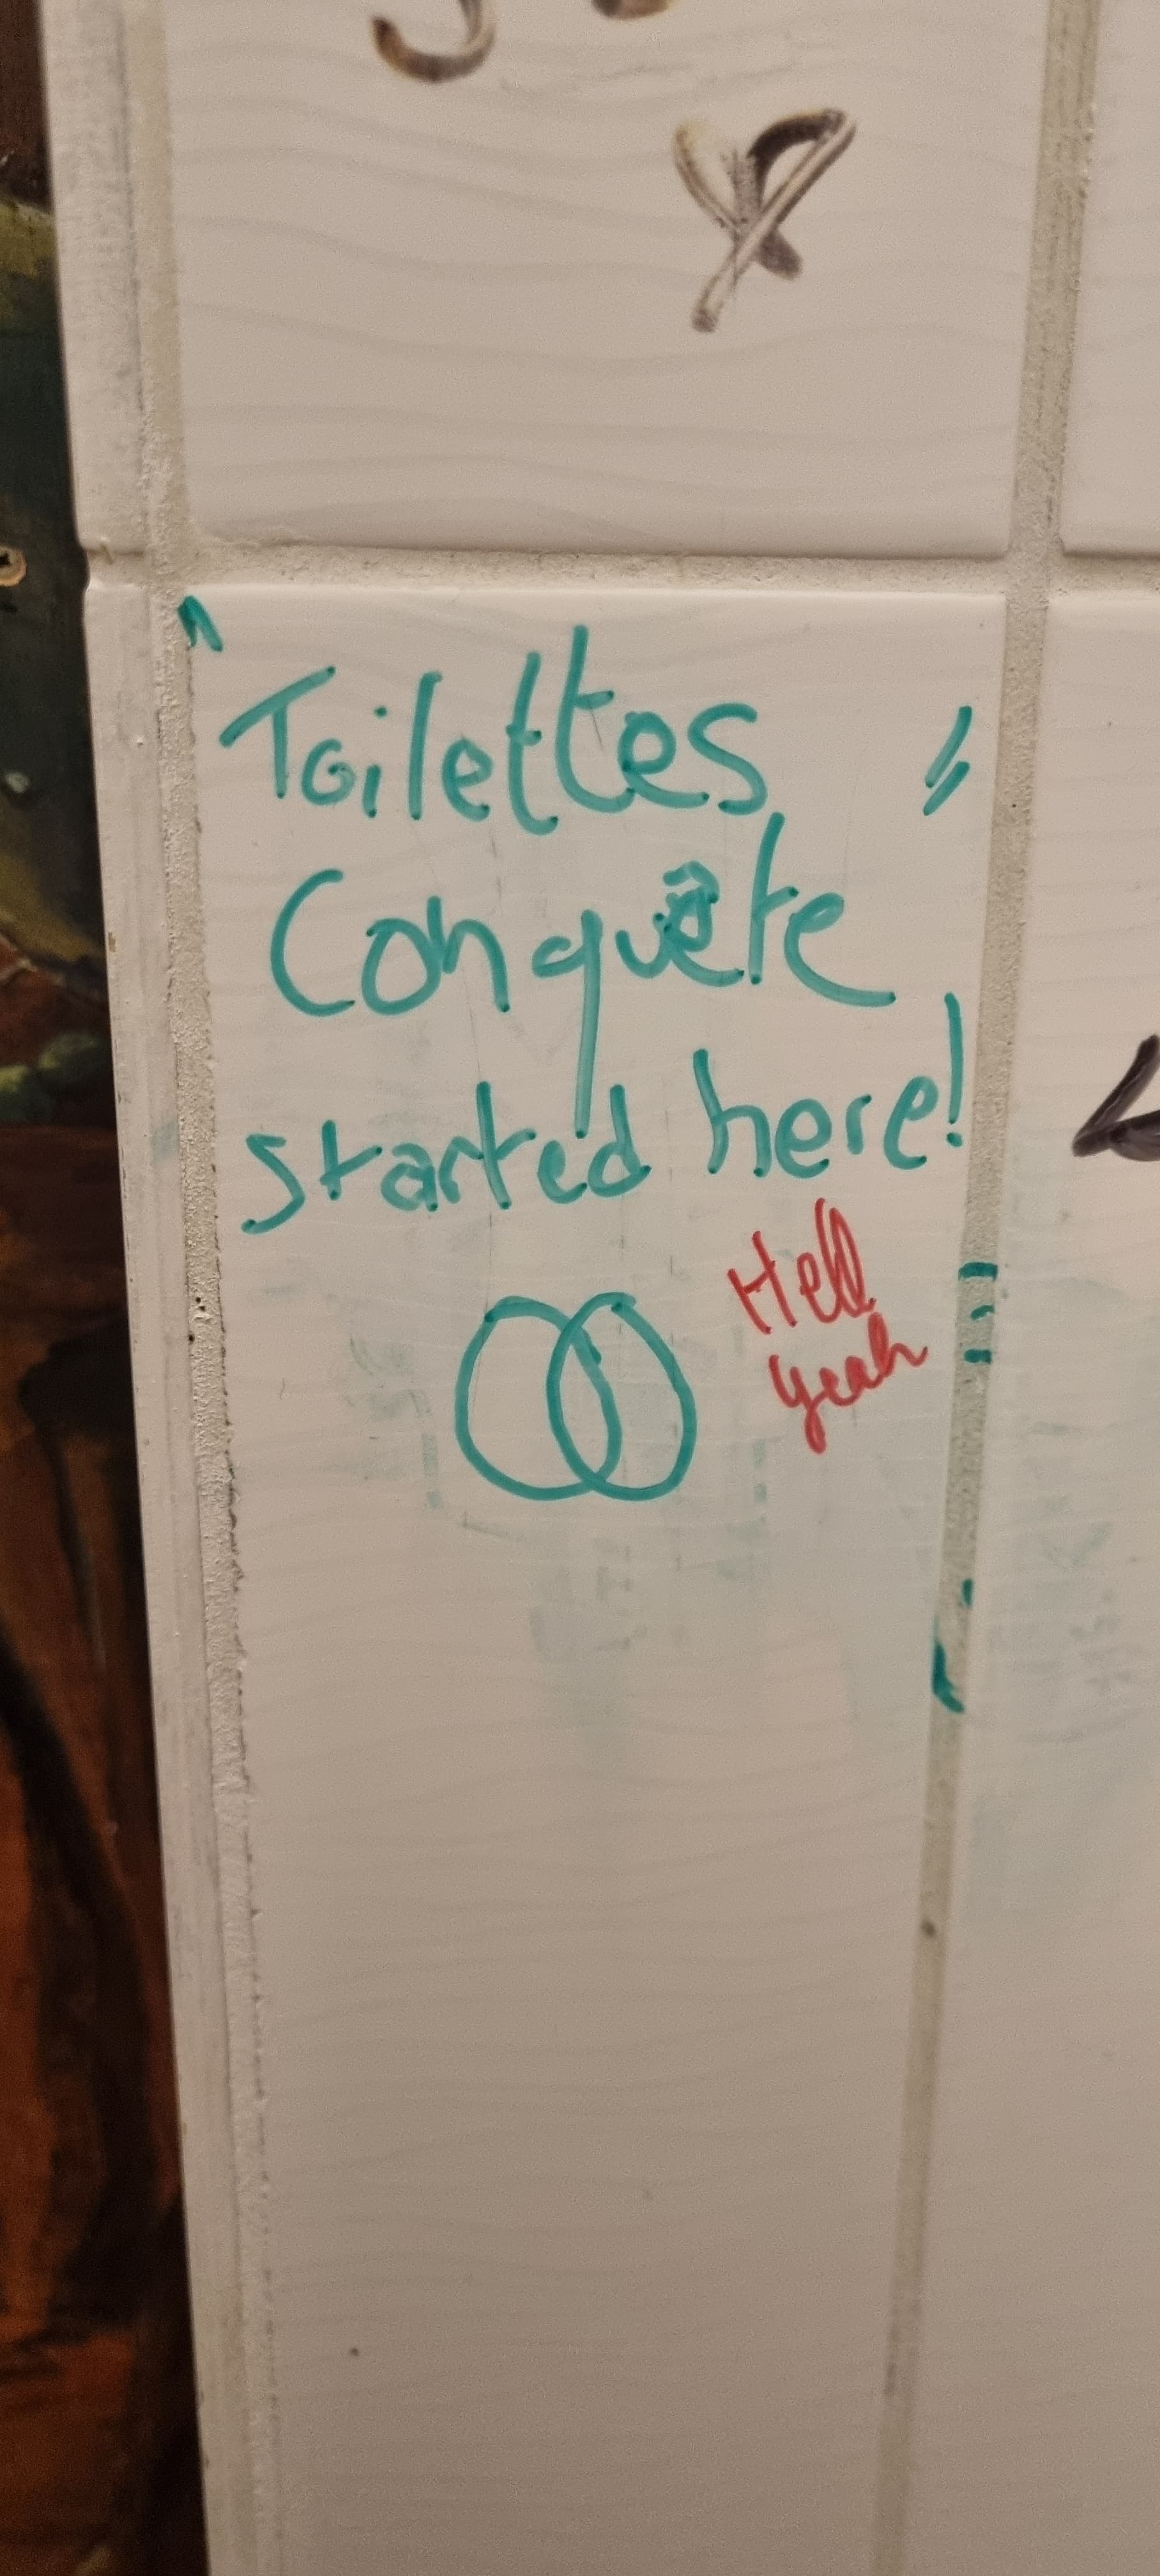 "Toilettes"
Conquête
started here!
Hell
yeah